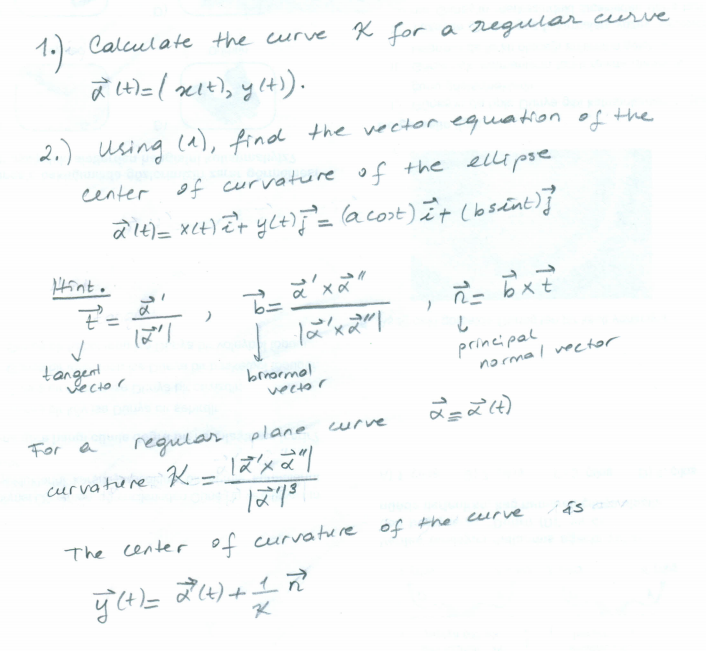 1.) Calculate the curve K for a regular curve
α⃗(t)=(x(t), y(t)).
2.) Using (1), find the vector equation of the
center of curvature of the ellipse
α⃗(t)= x(t)i⃗+ y(t)j⃗ = (acost)i⃗+ (bsint)j⃗
Hint.
t⃗ = α⃗'/|α⃗'| , b⃗ = α⃗'×α⃗''/|α⃗'×α⃗''| , n⃗ = b⃗×t⃗
↓ tangent vector ↓ binormal vector ↓ principal normal vector
For a regular plane curve α⃗=α⃗(t)
curvature K = |α⃗'×α⃗''|/|α⃗'|³
The center of curvature of the curve is
y⃗(t)= α⃗(t)+ 1/K n⃗